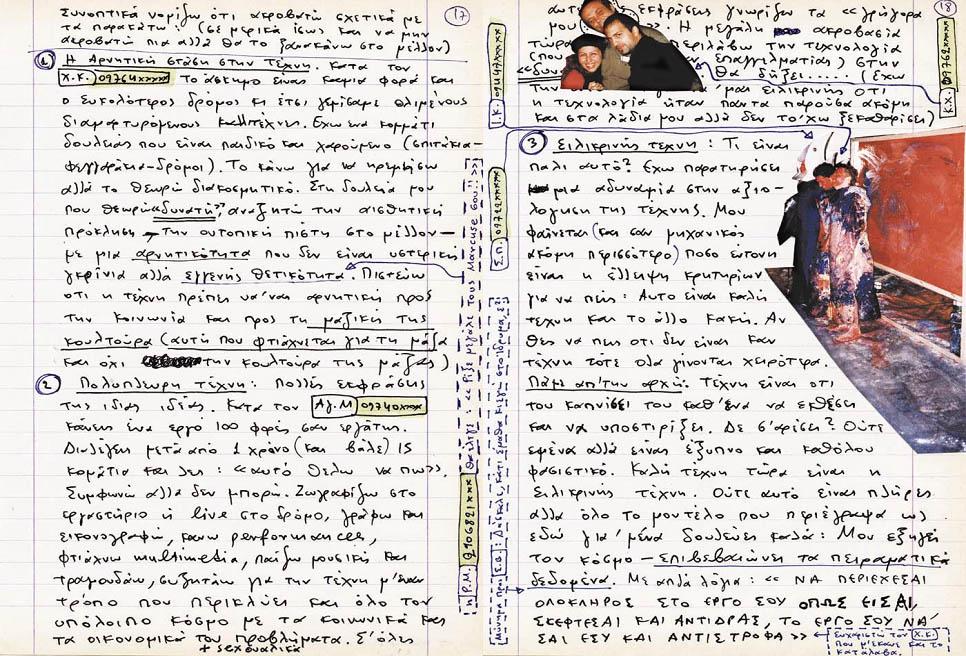 17
Συνοπτικά νομίζω ότι ακροβατώ σχετικά με
τα παρακάτω: (σε μερικά ίσως και να μην
ακροβατώ πια αλλά θα το ξανακάνω στο μέλλον)
1 Η Αρνητική στάση στην Τέχνη. Κατά τον
Χ.Κ. 09764xxxxx Το άσχημο είναι καμιά φορά και
ο ευκολότερος δρόμος κι έτσι γεμίσαμε θλιμένους
διαμαρτυρόμενους καλλιτέχνες. Έχω ένα κομμάτι
δουλειάς που είναι παιδικό και χαρούμενο (σπιτάκια-
φεγγαράκια-δρόμοι). Το κάνω για να ηρεμήσω
αλλά το θεωρώ διακοσμητικό. Στη δουλειά μου
που θεωρώ «δυνατή», αναζητώ την αισθητική
πρόκληση – την ουτοπική πίστη στο μέλλον –
με μια αρνητικότητα που δεν είναι υστερική
γκρίνια αλλά ευγενής θετικότητα. Πιστεύω
ότι η τέχνη πρέπει να 'ναι αρνητική προς
την κοινωνία και προς τη μαζική της
κουλτούρα (αυτή που φτιάχνεται για τη μάζα
και όχι την κουλτούρα της μάζας)
2 Πολύπλευρη τέχνη: Πολλές εκφράσεις
της ίδιας ιδέας. Κατά τον Αγ.Μ 09740xxxx
κάνεις ένα έργο 100 φορές σαν εργάτης.
Διαλέγεις μετά από 1 χρόνο (και βάλε) 15
κομάτια και λες: «αυτό θέλω να πω».
Συμφωνώ αλλά δεν μπορώ. Ζωγραφίζω στο
εργαστήριο ή live στο δρόμο, γράφω και
εικονογραφώ, κάνω performances,
φτιάχνω multimedia, παίζω μουσική και
τραγουδάω, συζητάω για την τέχνη μ' έναν
τρόπο που περικλύει και όλο τον
υπόλοιπο κόσμο με τα κοινωνικά και
τα οικονομικά του προβλήματα. Σ' όλες
+ sexουαλικά
η Ρ.Μ. 0106821xxx θα έλεγε: «Ρίξε μεγάλε τους Marcuse σου!!»
18
αυτές εκφράσεις γνωρίζω τα «γρήγορα
μου »». Η μεγάλη ακροβασία
τώρα περιλάβω την τεχνολογία
(που επαγγελματίας) στην
«δυνα θα δείξει..... (έχω
την 'μαι ειλικρινής ότι
η τεχνολογία ήταν πάντα παρούσα ακόμη
και στα λάδια μου αλλά δεν το 'χω ξεκαθαρίσει)
Ι.Κ. 09447xxxxxx
Κ.Χ. 09762xxxxx
Σ.Π. 09722xxxxx
3 Ειλικρινής τέχνη: Τι είναι
πάλι αυτό? Έχω παρατηρήσει
μια αδυναμία στην αξιο-
λόγηση της τέχνης. Μου
φαίνεται (και σαν μηχανικός
ακόμη περισσότερο) πόσο έντονη
είναι η έλλειψη κριτηρίων
για να πεις: Αυτό είναι καλή
τέχνη και το άλλο κακή. Αν
θες να πεις ότι δεν είναι καν
τέχνη τότε όλα γίνονται χειρότερα.
Πάμε απ' την αρχή: Τέχνη είναι ότι
του καπνίσει του καθ' ένα να εκθέσει
και να υποστηρίξει. Δε σ' αρέσει? Ούτε
εμένα αλλά είναι έξυπνο και καθόλου
φασιστικό. Καλή τέχνη τώρα είναι η
ειλικρινής τέχνη. Ούτε αυτό είναι πλήρες
αλλά όλο το μοντέλο που περιέγραψα ως
εδώ για 'μένα δουλεύει καλά: Μου εξηγεί
τον κόσμο – επιβεβαιώνει τα πειραματικά
δεδομένα. Με απλά λόγια: «ΝΑ ΠΕΡΙΕΧΕΣΑΙ
ΟΛΟΚΛΗΡΟΣ ΣΤΟ ΕΡΓΟ ΣΟΥ ΟΠΩΣ ΕΙΣΑΙ,
ΣΚΕΦΤΕΣΑΙ ΚΑΙ ΑΝΤΙΔΡΑΣ, ΤΟ ΕΡΓΟ ΣΟΥ ΝΑ'
ΣΑΙ ΕΣΥ ΚΑΙ ΑΝΤΙΣΤΡΟΦΑ»
Ευχαριστώ τον Χ.Κ.
που μ' έκανε και το
κατάλαβα.
Μήνυμα προς Ε.Β.: Δάσκαλε, κάτι έμαθα κι εγώ στο ίδρυμα,